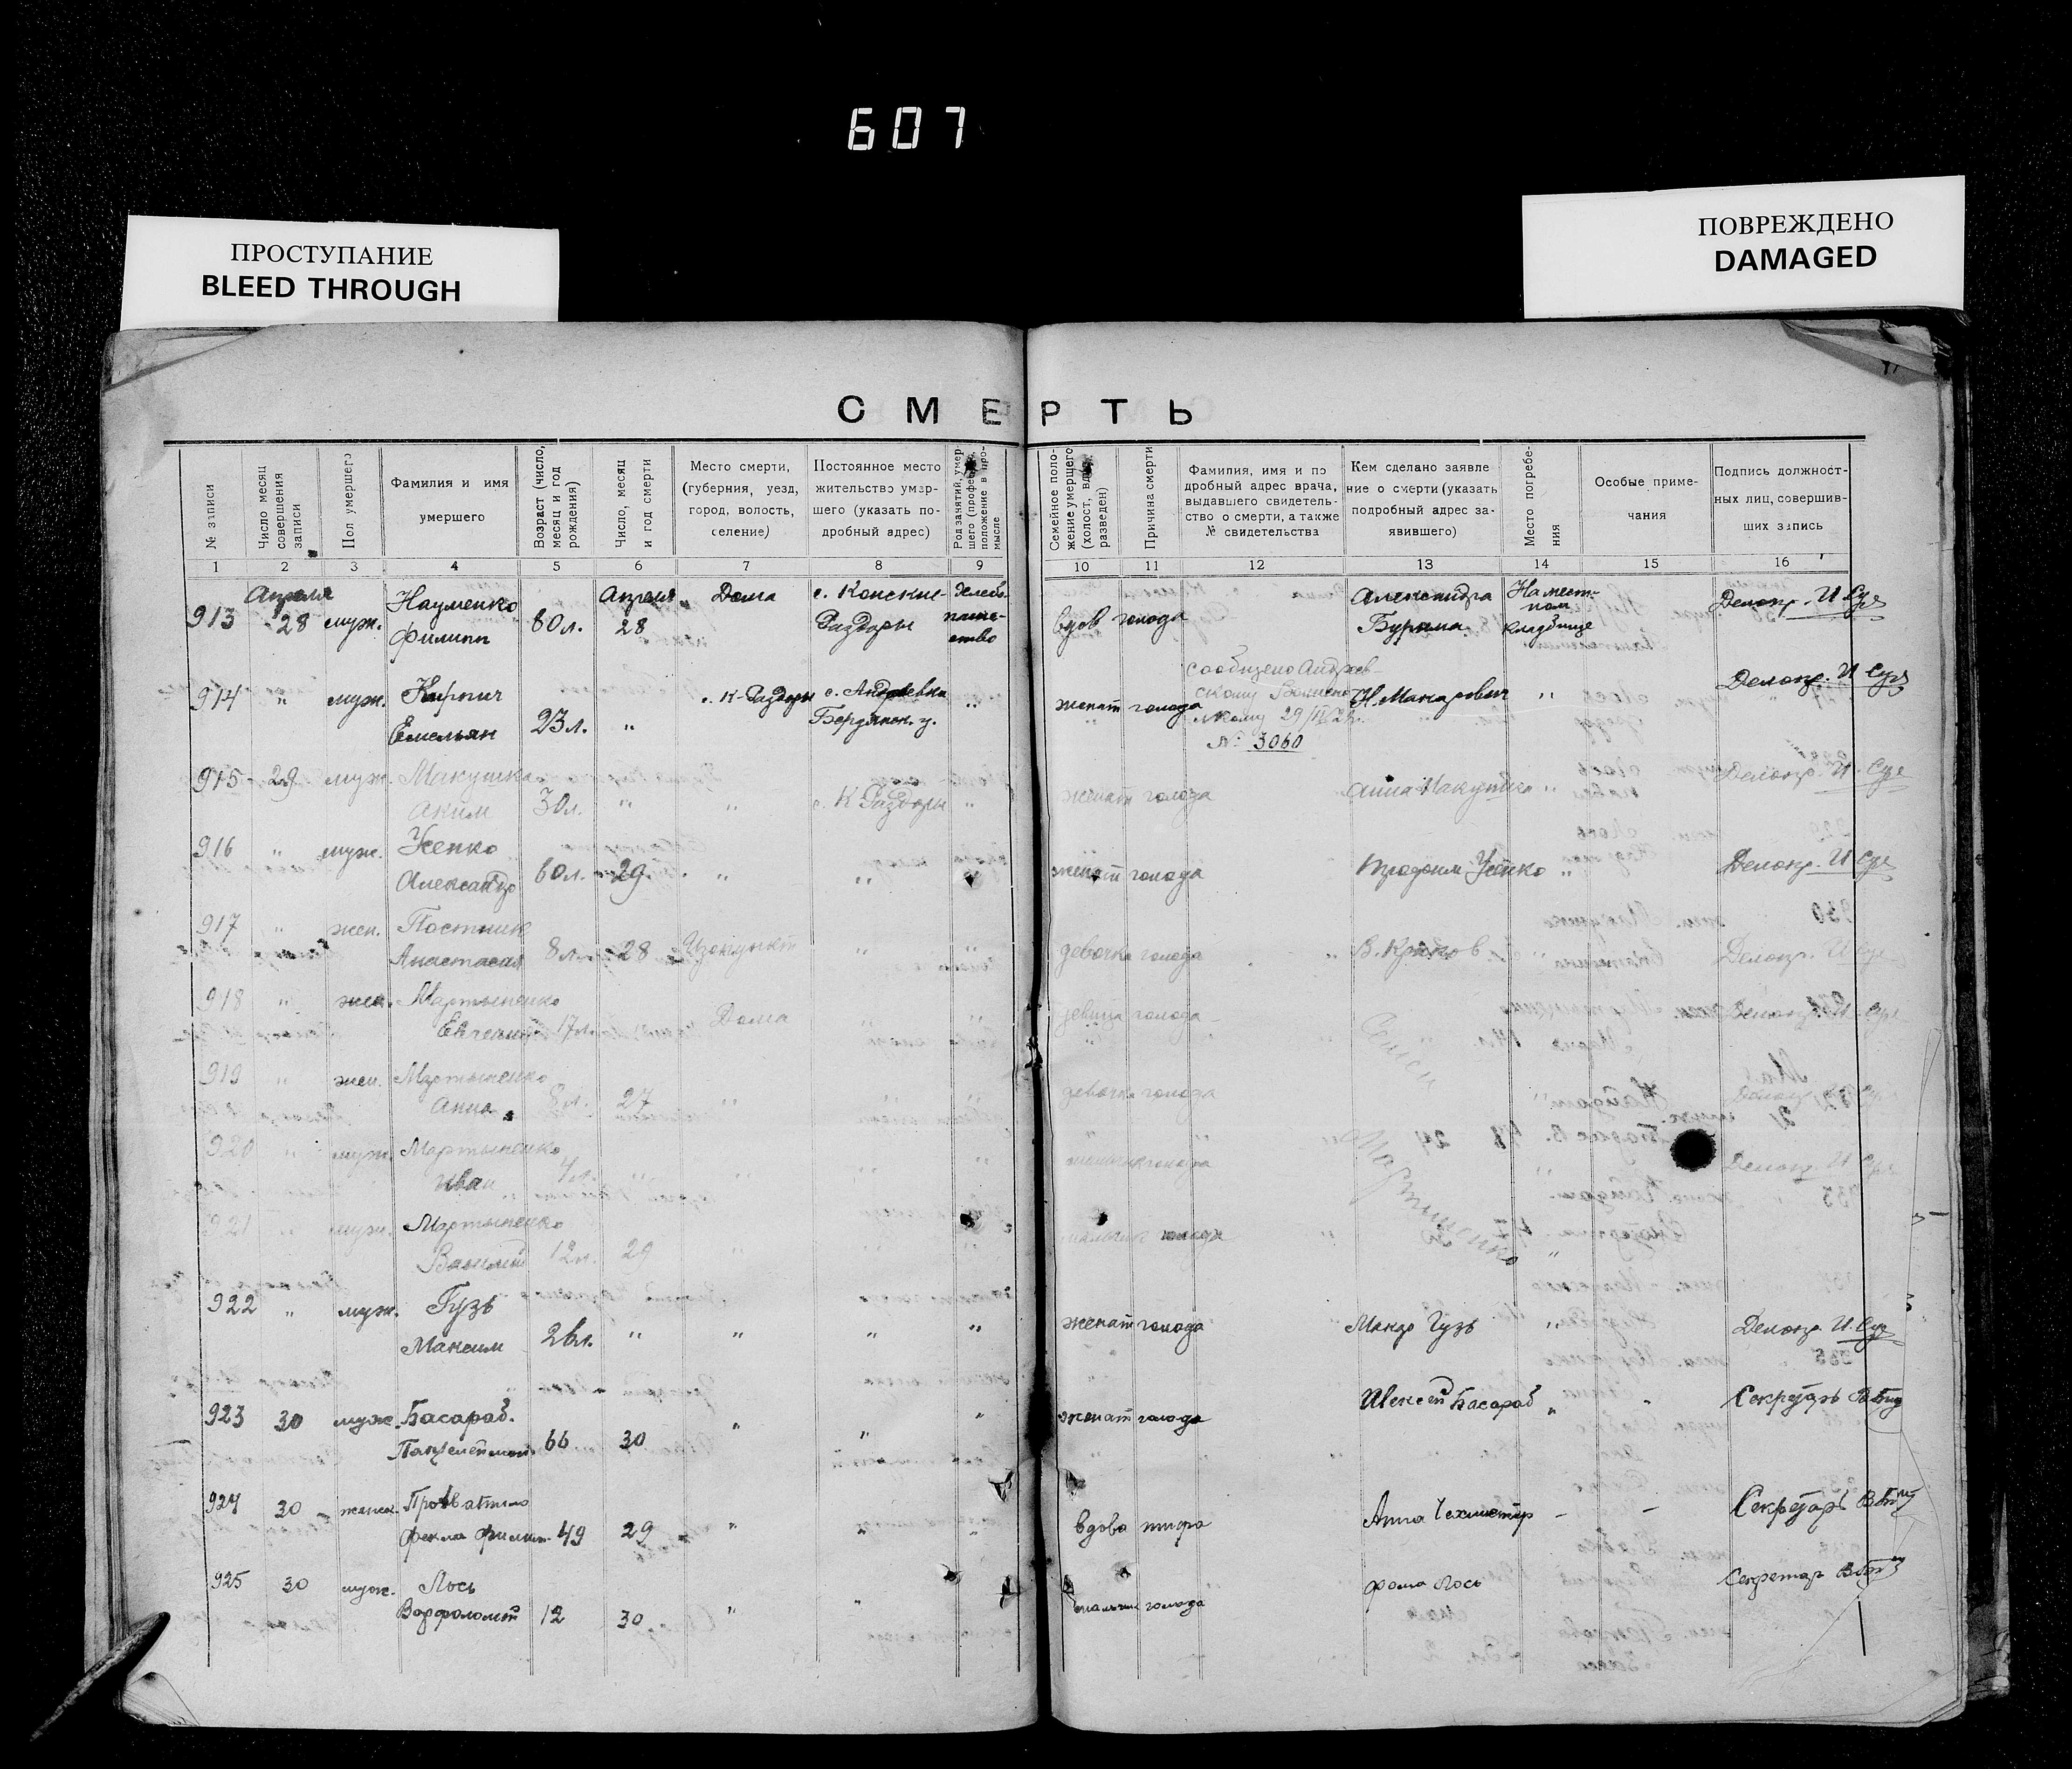 607
ПРОСТУПАНИЕ
BLEED THROUGH
ПОВРЕЖДЕНО
DAMAGED
СМЕРТЬ
№ записи
Число месяц совершения записи
Пол умершего
Фамилия и имя умершего
Возраст (число, месяц и год рождения)
Число, месяц и год смерти
Место смерти, (губерния, уезд, город, волость, селение)
Постоянное место жительство умершего (указать подробный адрес)
Род занятий, умершего (професс. положение в промысле
Семейное положение умершего (холост, вдов, разведен)
Причина смерти
Фамилия, имя и подробный адрес врача, выдавшего свидетельство о смерти, а также № свидетельства
Кем сделано заявление о смерти (указать подробный адрес заявившего)
Место погребения
Особые примечания
Подпись должностных лиц, совершивших запись
1 2 3 4 5 6 7 8 9 10 11 12 13 14 15 16
913 Апреля 28 муж. Науменко Филипп 60 л. Апреля 28 Дома с. Конские-Раздоры Хлебопашество вдов голода Александра Буряма На местном кладбище Делопр. И
914 " муж. Кирпич Емельян 23 л. " с. К-Раздоры с. Андреевка Бердянск. у. " женат голода сообщено Андреевскому 29/IV № 3060 Н. Макарович " Делопр. И
915 29 муж. Макушка Аким 30 л. " " с. К Раздоры " женат голода Анна Макушка " Делопр. И
916 " муж. Усенко Александр 60 л. 29 " " женат голода Трофим Усенко " Делопр. И
917 " жен. Постник Анастасия 8 л. 28 " " девочка голода В. Крюков " Делопр. И
918 " жен. Мартыненко 17 л. Дома " " девица голода Семен Мартыненко Делопр. И
919 " жен. Мартыненко Анна 8 л. 27 " " " девочка голода Делопр.
920 " муж. Мартыненко Иван 4 л. " " " " мальчик голода Делопр. И
921 " муж. Мартыненко Василий 12 л. 29 " " " мальчик голода "
922 " муж. Гузь Максим 26 л. " " " " женат голода Гузь " Делопр. И.
923 30 муж. Басараб. Пантелеймон 66 30 " " " женат голода Алексей Басараб " " Секретарь
924 30 женск. Фекла Филип. 49 29 " " " вдова тифа Анна - - Секретарь
925 30 муж. Лось Варфоломей 12 30 " " мальчик голода Фома Лось Секретар